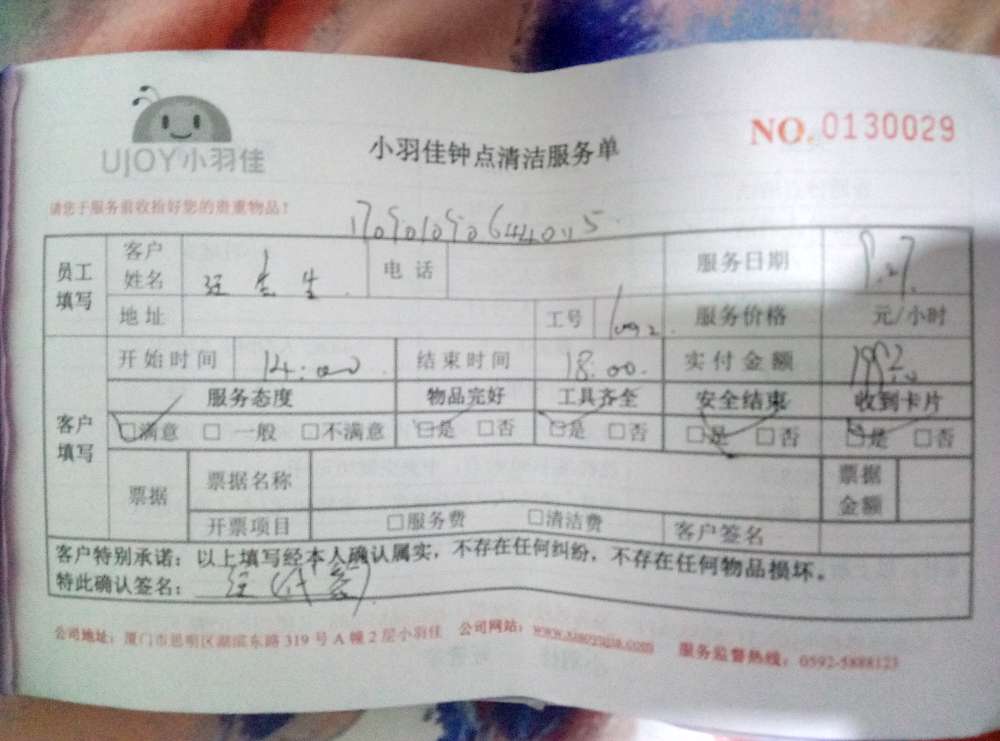 UJOY小羽佳
小羽佳钟点清洁服务单
NO.0130029
请您于服务前收拾好您的贵重物品!
员工填写 客户姓名 电话 服务日期 9.27.
地址 工号 服务价格 元/小时
客户填写 开始时间 14:00 结束时间 18:00. 实付金额
服务态度 物品完好 工具齐全 安全结束 收到卡片
□满意 □一般 □不满意 □是 □否 □是 □否 □是 □否 □是 □否
票据 票据名称 票据金额
开票项目 □服务费 □清洁费 客户签名
客户特别承诺:以上填写经本人确认属实,不存在任何纠纷,不存在任何物品损坏。
特此确认签名:
公司地址:厦门市思明区湖滨东路319号A幢2层小羽佳 公司网站: 服务监督热线:0592-5888123